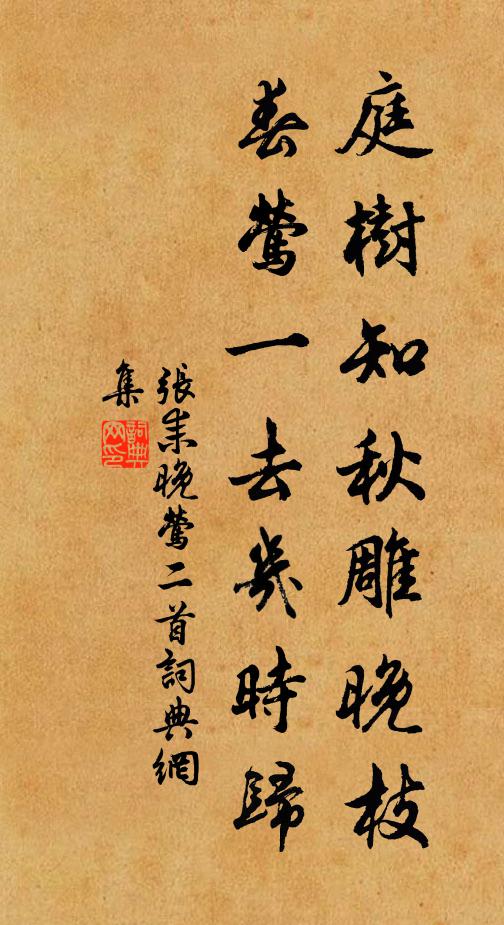 庭樹知秋雕晚枝
春鶯一去幾時歸
張耒晚鶯二首詞典網
集
詞典
网印